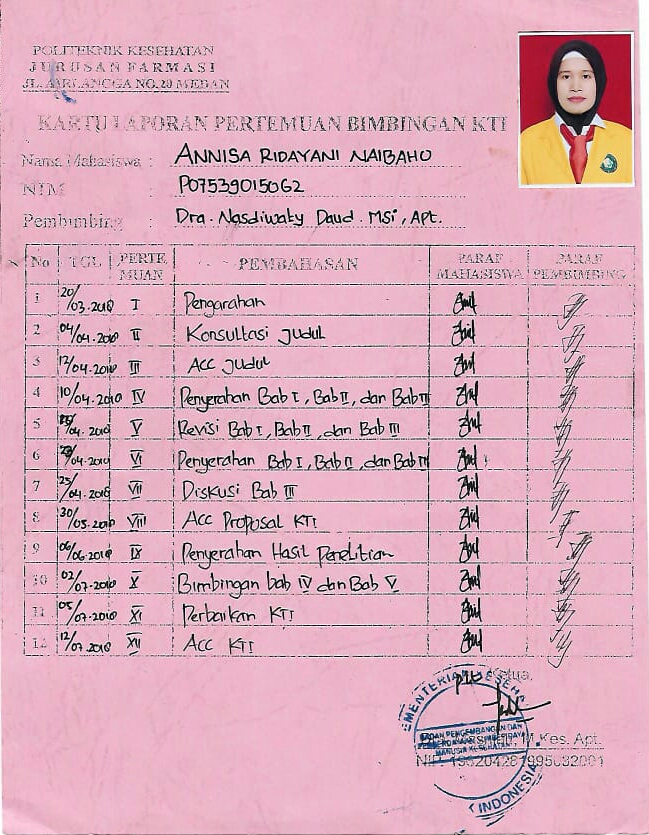 POLITEKNIK KESEHATAN
JURUSAN FARMASI
JL. AIRLANGGA NO.20 MEDAN
KARTU LAPORAN PERTEMUAN BIMBINGAN KTI
Nama Mahasiswa : ANNISA RIDAYANI NAIBAHO
NIM : P07539015062
Pembimbing : Dra. Nasdiwaty Daud. MSi, Apt.
No TGL PERTEMUAN PEMBAHASAN PARAF MAHASISWA PARAF PEMBIMBING
1 20/03.2018 I Pengarahan
2 04/04.2018 II Konsultasi Judul
3 12/04.2018 III ACC Judul
4 10/04.2018 IV Penyerahan Bab I, Bab II, dan Bab III
5 /04.2018 V Revisi Bab I, Bab II, dan Bab III
6 /04.2018 VI Penyerahan Bab I, Bab II, dan Bab III
7 25/04.2018 VII Diskusi Bab III
8 30/05.2018 VIII Acc Proposal KTI
9 06/06.2018 IX Penyerahan Hasil Penelitian
10 02/07.2018 X Bimbingan bab IV dan Bab V
11 05/07.2018 XI Perbaikan KTI
12 12/07.2018 XII ACC KTI
Ketua,
M.Kes. Apt.
NIP.
KEMENTERIAN KESEHATAN
BADAN PENGEMBANGAN DAN
PEMBERDAYAAN SUMBERDAYA
MANUSIA KESEHATAN
INDONESIA